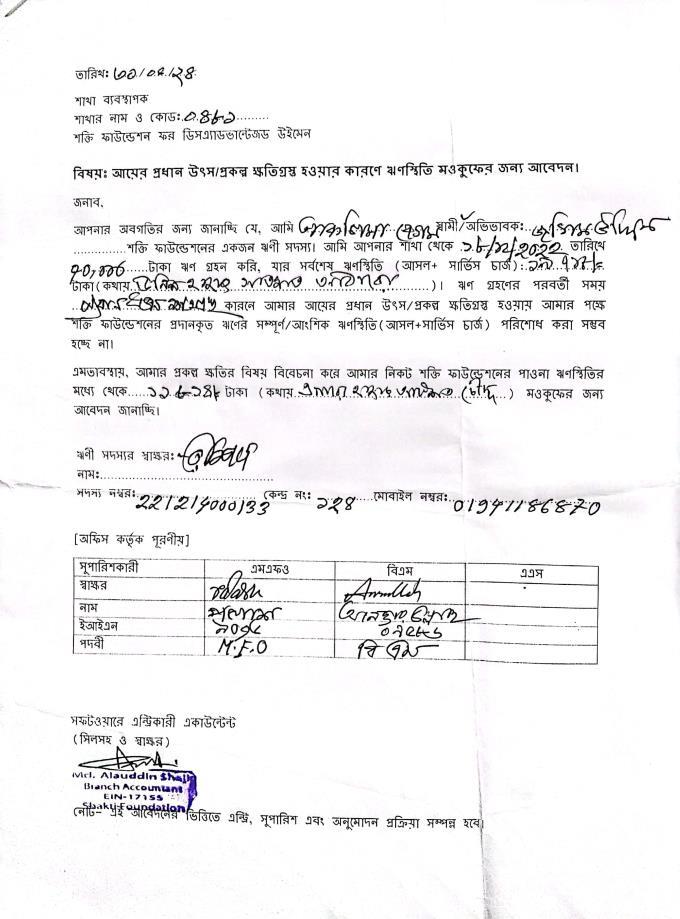 তারিখ: ৩০/০৪/২৪
শাখা ব্যবস্থাপক
শাখার নাম ও কোড: ০৪৮১
শক্তি ফাউন্ডেশন ফর ডিসএ্যাডভান্টেজড উইমেন
বিষয়: আয়ের প্রধান উৎস/প্রকল্প ক্ষতিগ্রস্ত হওয়ার কারণে ঋণস্থিতি মওকুফের জন্য আবেদন।
জনাব,
আপনার অবগতির জন্য জানাচ্ছি যে, আমি বেগম স্বামী/অভিভাবক:
শক্তি ফাউন্ডেশনের একজন ঋণী সদস্য। আমি আপনার শাখা থেকে ১৮/১২/২০২২ তারিখে
৭০,০০০ টাকা ঋণ গ্রহন করি, যার সর্বশেষ ঋণস্থিতি (আসল+ সার্ভিস চার্জ):
টাকা (কথায় হাজার সাতশত)। ঋণ গ্রহণের পরবর্তী সময়
কারণে আমার আয়ের প্রধান উৎস/প্রকল্প ক্ষতিগ্রস্ত হওয়ায় আমার পক্ষে
শক্তি ফাউন্ডেশনের প্রদানকৃত ঋণের সম্পূর্ণ/আংশিক ঋণস্থিতি (আসল+সার্ভিস চার্জ) পরিশোধ করা সম্ভব
হচ্ছে না।
এমতাবস্থায়, আমার প্রকল্প ক্ষতির বিষয় বিবেচনা করে আমার নিকট শক্তি ফাউন্ডেশনের পাওনা ঋণস্থিতির
মধ্যে থেকে টাকা (কথায় এগার হাজার চৌদ্দ) মওকুফের জন্য
আবেদন জানাচ্ছি।
ঋণী সদস্যর স্বাক্ষর:
নাম:
সদস্য নম্বর: 221214000133 কেন্দ্র নং: ১২৪ মোবাইল নম্বর: 01941186870
[অফিস কর্তৃক পূরণীয়]
সুপারিশকারী এমএফও বিএম এএস
স্বাক্ষর
নাম পলাশ
ইআইএন
পদবী M.F.O বি এম
সফটওয়ারে এন্ট্রিকারী একাউন্টেন্ট
(সিলসহ ও স্বাক্ষর)
Md. Alauddin Shaik
Branch Accountant
EIN-17155
Shakti Foundation
নোট- এই আবেদনের ভিত্তিতে এন্ট্রি, সুপারিশ এবং অনুমোদন প্রক্রিয়া সম্পন্ন হবে।